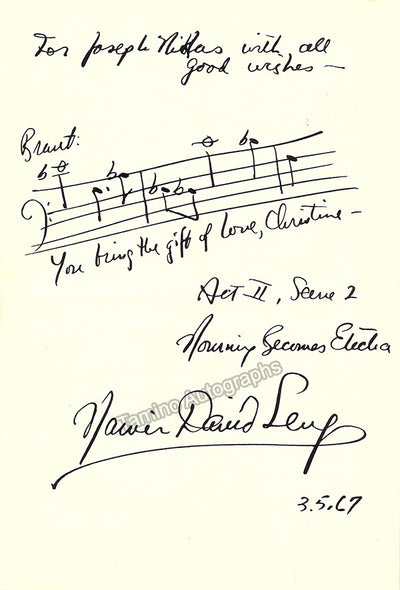 For Joseph Nittas with all
good wishes —
Brant:
You bring the gift of love, Christine —
Act II, Scene 2
Mourning Becomes Electra
Tamino Autographs
Marvin David Levy
3.5.67